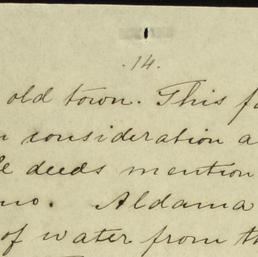 .14.
old town. This fa
consideration a
deeds mention
Aldama
of water from th